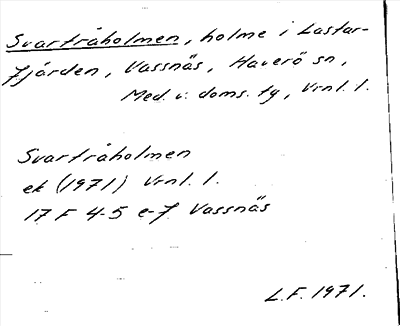 Svartråholmen, holme i Lastar-
fjärden, Vassnäs, Haverö sn,
Med. v. doms. tg, Vrnl. l.
Svartråholmen
ek (1971) Vrnl. l.
17 F 4-5 e-f Vassnäs
L.F. 1971.